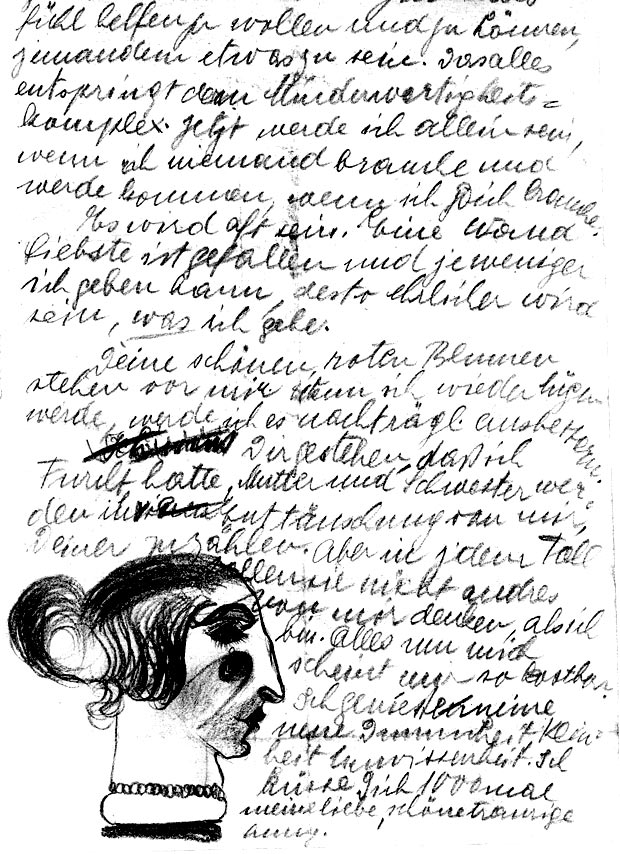 fühl helfen zu wollen und zu können,
jemandem etwas zu sein. Das alles
entspringt dem Minderwertigkeits-
komplex. Jetzt werde ich allein sein,
wenn ich niemand brauche und
werde kommen, wenn ich Dich brauche.
Es wird oft sein. Eine Wand
Liebste ist gefallen und je weniger
ich geben kann, desto ehrlicher wird
sein, was ich gebe.
Deine schönen, roten Blumen
stehen vor mir. Wenn ich wieder lügen
werde, werde ich es nachträgl. ausbessern.
Dir gestehen, dass ich
Furcht hatte, Mutter und Schwester wer-
den ihre Enttäuschung von mir,
Deiner erzählen. Aber in jedem Fall
sollen sie nicht andres
von mir denken, als ich
bin. Alles um mich
scheint mir so kostbar.
Ich geniesse meine
neue Dummheit, Klein-
heit Unwissenheit. Ich
küsse Dich 1000 mal
meine liebe, schöne traurige